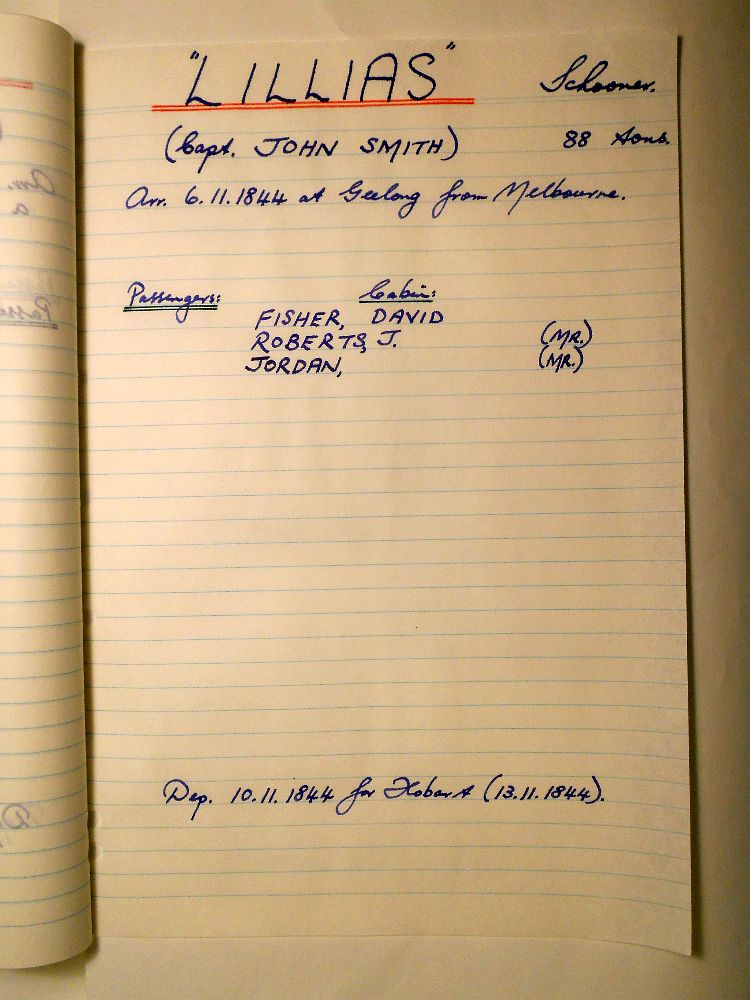 "LILLIAS" Schooner.
(Capt. JOHN SMITH) 88 tons.
Arr. 6.11.1844 at Geelong from Melbourne.
Passengers: Cabin:
FISHER, DAVID
ROBERTS, J. (MR.)
JORDAN, (MR.)
Dep. 10.11.1844 for Hobart (13.11.1844).